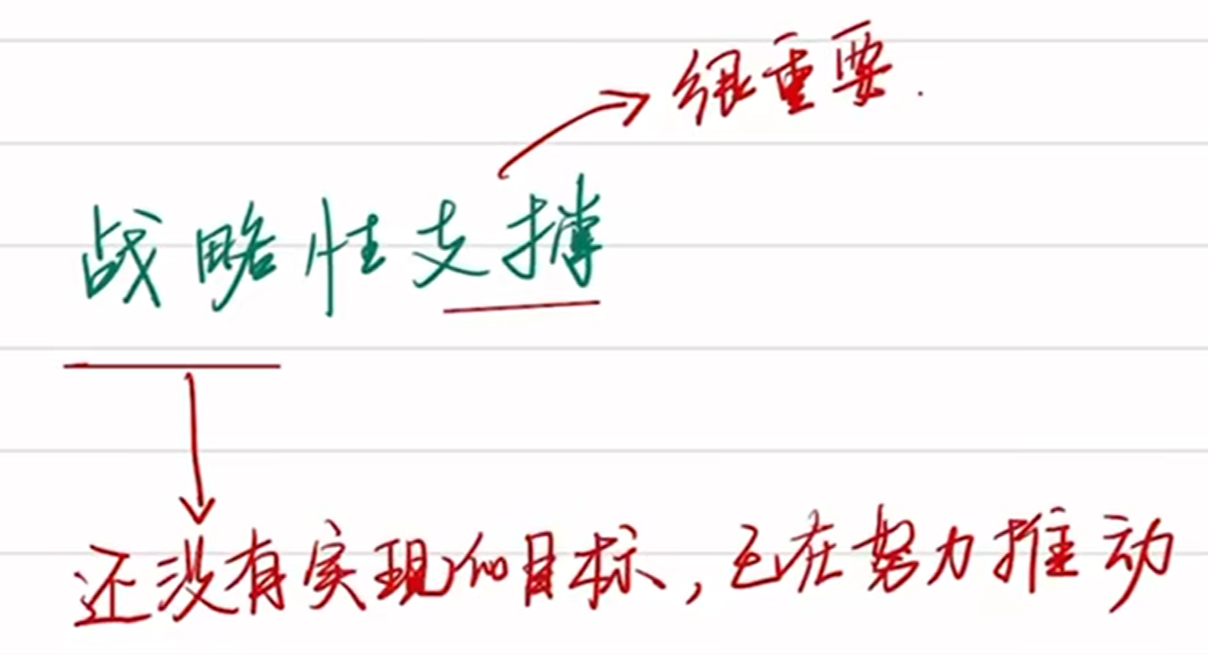 很重要.
战略性支撑
还没有实现的目标,正在努力推动